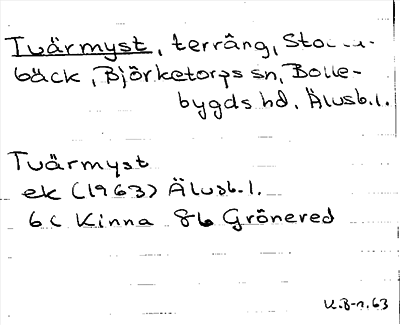 Tvärmyst, terräng,
bäck, Björketorps sn, Bolle-
bygds hd, Älvsb.l.
Tvärmyst
ek (1963) Älvsb.l.
6c Kinna 8b Grönered
K.B-n. 63